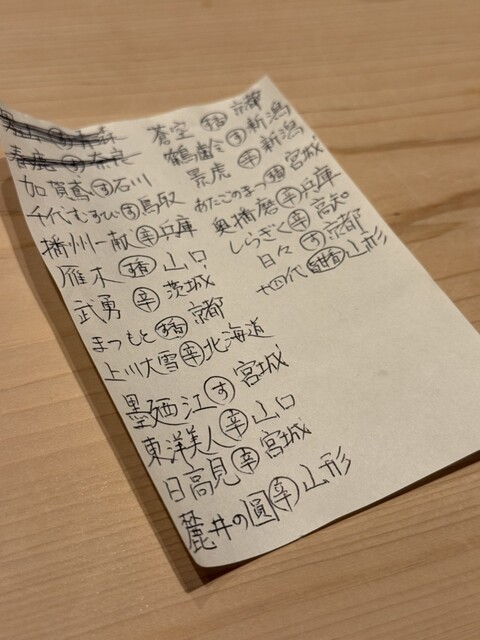 春鹿 す 奈良
加賀鳶 す 石川
千代むすび す 鳥取
播州一献 辛 兵庫
雁木 香 山口
武勇 辛 茨城
まつもと 香 京都
上川大雪 辛 北海道
墨廼江 す 宮城
東洋美人 辛 山口
日高見 辛 宮城
麓井の圓 辛 山形
蒼空 香 京都
鶴齢 す 新潟
景虎 辛 新潟
あたごのまつ 香 宮城
奥播磨 辛 兵庫
しらぎく 辛 高知
日々 す 京都
十四代 甘香 山形